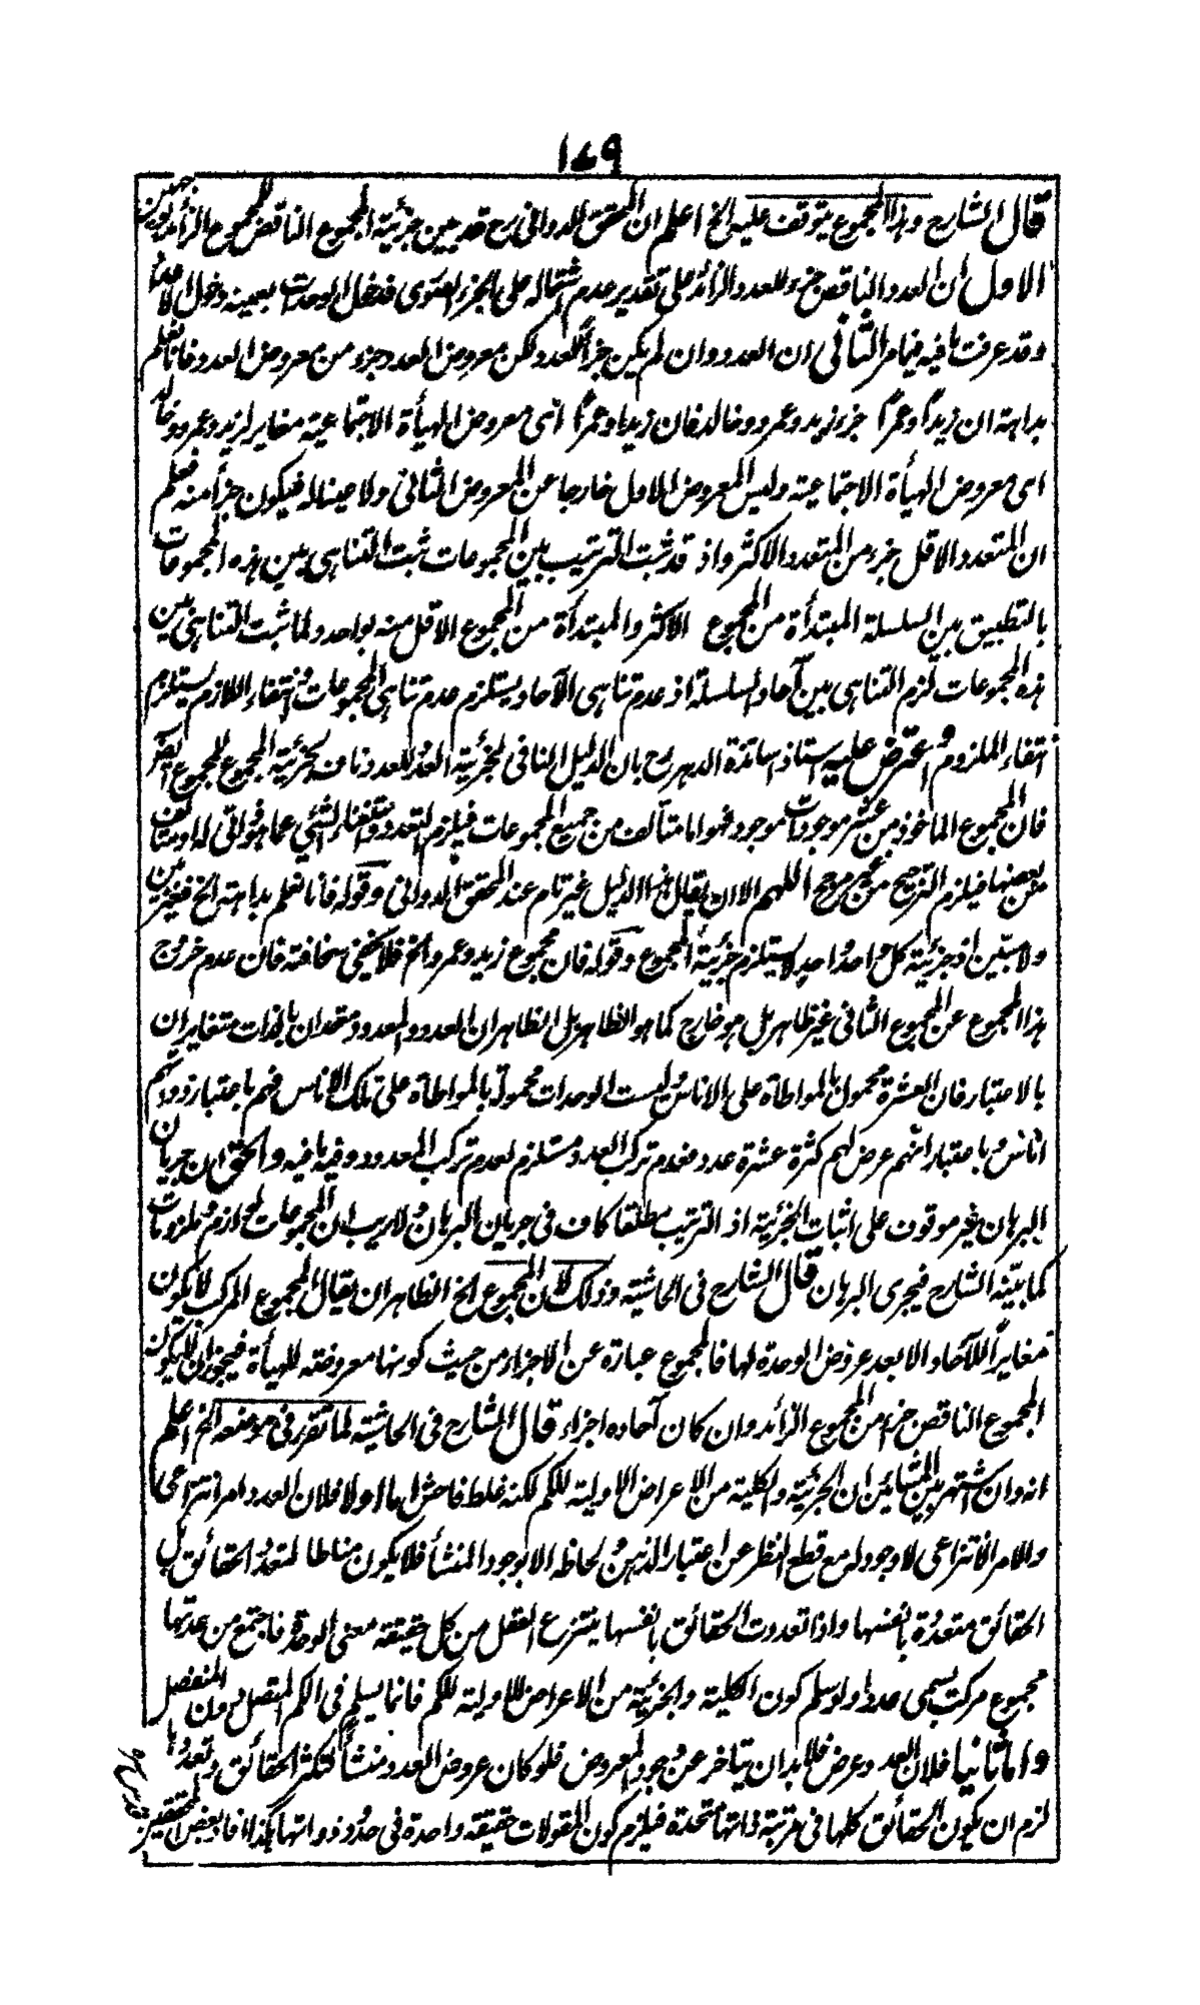 ١٧٩
قال الشارح وهذا المجموع يتوقف عليه الخ اعلم ان المحقق الدواني رح قد بين جزئية المجموع الناقص للمجموع الزائد بوجهين
الاول ان العدد الناقص جزء للعدد الزائد على تقدير عدم اشتماله على الجزء الصوري فدخل الوحدات بعينه دخول الاعداد
وقد عرفت ما فيه فيما مر الثاني ان العدد وان لم يكن جزأ للعدد لكن معروض العدد جزء من معروض العدد فانا نعلم
بداهة ان زيدا وعمرا جزء زيد وعمرو وخالد فان زيدا وعمرا اى معروض الهيأة الاجتماعية مغاير لزيد وعمرو وخالد
اى معروض الهيأة الاجتماعية وليس المعروض الاول خارجا عن المعروض الثاني ولا عينا له فيكون جزأ منه فعلم
ان المتعدد الاقل جزء من المتعدد الاكثر واذ قد ثبت الترتيب بين المجموعات ثبت التناهى بين هذه المجموعات
بالتطبيق بين السلسلة المبتدأة من المجموع الاكثر والمبتدأة من المجموع الاقل منه بواحد ولما ثبت التناهى بين
هذه المجموعات لزم التناهى بين آحاد السلسلة اذ عدم تناهى الآحاد يستلزم عدم تناهى المجموعات وانتفاء اللازم يستلزم
انتفاء الملزوم واعترض عليه استاذ اساتذة الدهر رح بان الدليل النافي لجزئية العدد للعدد ناف لجزئية المجموع للمجموع ايضا
فان المجموع الماخوذ من عشر موجودات موجود فهو اما متألف من جميع المجموعات فيلزم التعدد واستغناء الشئ عما هو ذاتى له او متألف
من بعضها فيلزم الترجيح من غير مرجح اللهم الا ان يقال هذا الدليل غير تام عند المحقق الدواني وقوله فانا نعلم بداهة الخ فغير بين
ولا مبين اذ جزئية كل واحد واحد لا يستلزم جزئية المجموع وقوله فان مجموع زيد وعمرو الخ فلا يخفى سخافته فان عدم خروج
هذا المجموع عن المجموع الثاني غير ظاهر بل هو خارج كما هو الظاهر بل الظاهر ان العدد والمعدود متحدان بالذات متغايران
بالاعتبار فان العشرة محمول بالمواطاة على الاناس وليست الوحدات محمولة بالمواطاة على تلك الاناس فهم باعتبار ذواتهم
اناس وباعتبار انهم عرض لهم كثرة عشرة عدد فعدم تركب العدد مستلزم لعدم تركب المعدود وفيه ما فيه والحق ان جريان
البرهان غير موقوف على اثبات الجزئية اذ الترتيب مطلقا كاف في جريان البرهان ولا ريب ان المجموعات لوازم وملزومات
كما بينه الشارح فيجرى البرهان قال الشارح فى الحاشية وذلك لان المجموع الخ الظاهر ان يقال المجموع المركب لا يكون
مغايرا للآحاد الا بعد عروض الوحدة لها فالمجموع عبارة عن الاجزاء من حيث كونها معروضة للهيأة فيجوز ان لا يكون
المجموع الناقص جزء من المجموع الزائد وان كان آحاده اجزاء قال الشارح فى الحاشية لما تقرر فى موضعه الخ اعلم
انه وان اشتهر بين المشائين ان الجزئية والكلية من الاعراض الاولية للكم لكنه غلط فاحش اما اولا فلان العدد امر انتزاعى
والامر الانتزاعى لا وجود له مع قطع النظر عن اعتبار الذهن ولحاظه الا بوجود المنشأ فلا يكون مناطا لتعدد الحقائق بل
الحقائق متعددة بانفسها واذا تعددت الحقائق بانفسها ينتزع العقل من كل حقيقة معنى الوحدة فاجتمع من عدتها
مجموع مركب يسمى عددا ولو سلم كون الكلية والجزئية من الاعراض الاولية للكم فانما يسلم فى الكم المتصل دون المنفصل
واما ثانيا فلان العدد عرض فلابد ان يتاخر عن وجود المعروض فلو كان عروض العدد منشأ لتكثر الحقائق وتعددها
لزم ان يكون الحقائق كلها فى مرتبة ذاتها متحدة فيلزم كون المقولات حقيقة واحدة فى حدود ذواتها هكذا افاد بعض المحققين
قدس سره